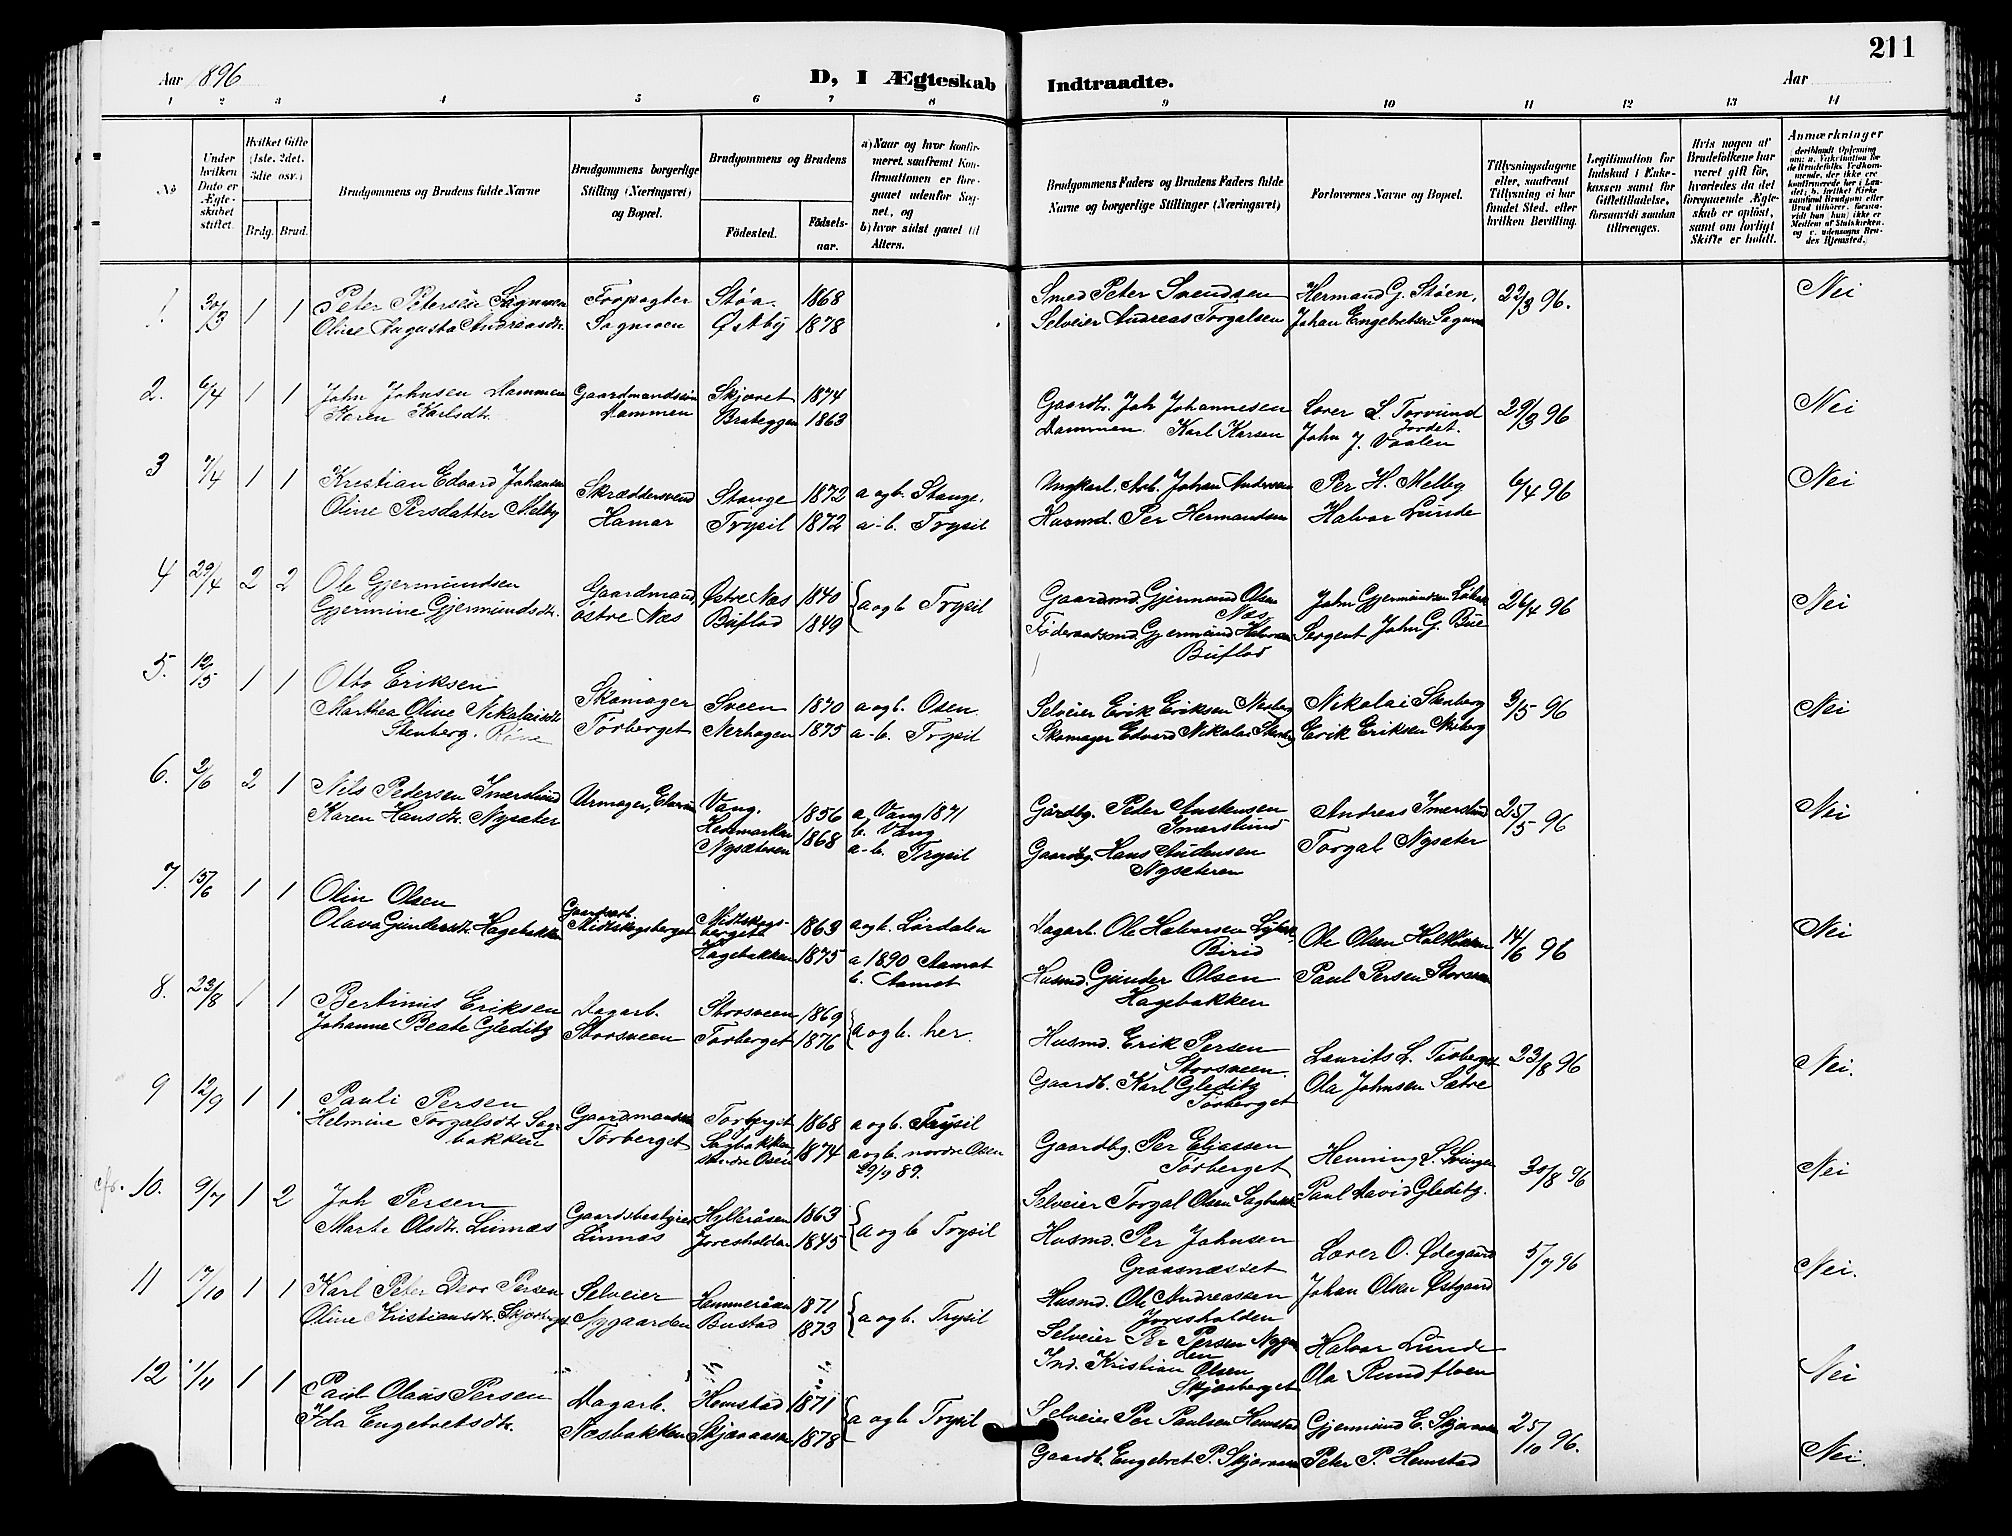 211
Aar 1896
D, I Ægteskab Indtraadte.
Aar
1 2 3 4 5 6 7 8 9 10 11 12 13 14
No
Under hvilken Dato er Ægteskabet stiftet.
Hvilket Gifte (1ste, 2det, 3die osv.)
Brdg. Brud.
Brudgommens og Brudens fulde Navne
Brudgommens borgerlige Stilling (Næringsvei) og Bopæl.
Brudgommens og Brudens
Fødested.
Fødselsaar.
a) Naar og hvor konfirmeret, saafremt Konfirmationen er foregaaet udenfor Sognet, og
b) hvor sidst gaaet til Alters.
Brudgommens Faders og Brudens Faders fulde Navne og borgerlige Stillinger (Næringsvei)
Forlovernes Navne og Bopæl.
Tillysningsdagene eller, saafremt Tillysning ei har fundet Sted, efter hvilken Bevilling.
Legitimation for Indskud i Enkekassen samt for Giftetilladelse, forsaavidt saadan tiltrænges.
Hvis nogen af Brudefolkene har været gift før, hvorledes da det foregaaende Ægteskab er opløst, samt om lovligt Skifte er holdt.
Anmærkninger
1. 30/3 1 1 Peter Petersen Sagmoen Forpagter Støa. 1868 Smed Peter Svendsen Hermand G. Støen, 22/3 96. Nei
Oline Augusta Andreasdtr. Sagmoen Østby 1878 Selveier Andreas Torgalsen Johan Engebretsen Sagmo
2. 6/4 1 1 John Johnsen Dammen Gaardmandssøn Skjøret 1874 Gaardbr. Joh Johannesen Lover L. Torvund 29/3 96 Nei
Karen Karlsdtr. Dammen Brateggen 1863 Dammen. Karl Karsen Jordet.
John J. Vaalen
3 7/4 1 1 Kristian Edvard Johansen Skræddersvend Stange 1872 a og b. Stange. Ungkarl. Arb. Johan Andersen Per H. Melby 6/4 96 Nei
Oline Persdatter Melby Hamar Trysil 1872 a-b. Trysil Husmd. Per Hermandsen Halvor Lunde
4 29/4 2 2 Ole Gjermundsen Gaardmand, Østre Næs 1840 a og b Trysil Gaardmd. Gjermund Olsen Næs, John Gjermundsen 26/4 96 Nei
Gjermine Gjermundsdtr. østre Næs Buflod 1849 Føderaadsmd. Gjermund Halvorsen Sergent John G. Bue
Buflod
5. 12/5 1 1 Otto Eriksen Skomager Sveen 1870 a og b. Osen. Selveier Erik Eriksen Nesberg Nikolai Stenberg 3/5 96 Nei
Marthea Oline Nikolaisdtr. Tørberget Nerhagen 1875 a-b. Trysil Skomager Edvard Nikolai Stenberg Erik Eriksen Nesberg
Stenberg.
6. 2/6 2 1 Nils Pedersen Imerslund Urmager, Elverum Vang, 1856 a. Vang 1871 Gårdbg. Peter Amtensen Andreas Imerslund 25/5 96 Nei
Hedemarken b. Vang Imerslund
Karen Hansdtr. Nysæter Nysæteren 1868 a-b. Trysil Gaardbg. Hans Audensen Torgal Nysæter
Nyseteren
7. 15/6 1 1 Olin Olsen Gaardarb. Midtskogsberget 1863 a og b. Lørdalen Dagarb. Ole Halvorsen Ole Olsen 14/6 96 Nei
Midtskogsberget Birid
Olava Gundersdtr. Hagebakken Hagebakken 1875 a 1890 Aamot Husmd. Gunder Olsen Paul Persen Storsveen
b. Aamot Hagebakken
8. 23/8 1 1 Bertinius Eriksen Dagarb. Storsveen 1869 a og b. her. Husmd. Erik Persen Laurits L. Tørberget 23/8 96 Nei.
Storsveen.
Johanne Beate Gleditz Storsveen Tørberget 1876 Gaardb. Karl Gleditz Ola Johnsen Sætre
Tørberget
9 12/9 1 1 Pauli Persen Gaardmandssøn Tørberget 1868 a og b. Trysil Gaardbg. Per Eliassen Henning L. 30/8 96 Nei
Tørberget
Helmine Torgalsdtr. Sagbakken Tørberget Sagbakken, søndre Osen 1874 a og b. nordre Osen 29/9 89. Selveier Torgal Olsen Sagbakk Paul David Gleditz.
cfr. 10. 9/7 1 2 Joh Persen Gaardsbestyrer Hylleråsen 1863 a og b Trysil Husmd. Per Johnsen Lover O. Ødegaard 5/7 96 Nei.
Graasnæsset
Marte Olsdtr. Lunnæs Lunnæs Joresholden 1845 Husmd. Ole Andreassen Johan Olsen Østgaard
Joresholden
11 17/10 1 1 Karl Peter Persen Selveier Hammeråsen 1871 a og b. Trysil Selveier Per Persen Nygaarden Halvor Lunde Nei
Oline Kristiansdtr. Skjærberget Nygaarden Bustad 1873 Ind. Kristian Olsen Ola Rundfloen
Skjærberget
12 1/4 1 1 Paul Olaus Persen Dagarb. Hemstad 1871 a og b Trysil Selveier Per Paulsen Hemstad Gjermund E. Skjæraasen 25/10 96. Nei.
Ida Engebretsdtr. Næsbakken Skjæraasen 1878 Gaardb. Engebret P. Skjæraasen Peter P. Hemstad